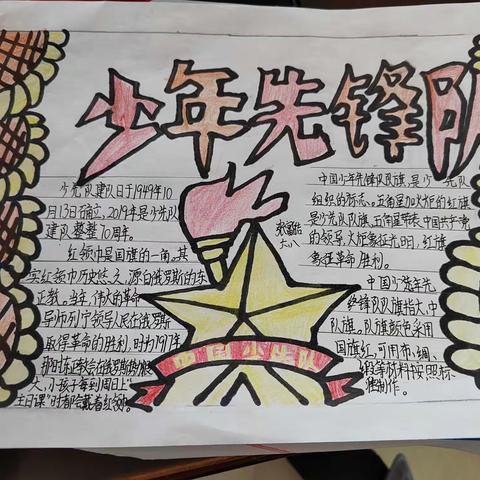 少年先锋队
少先队建队日于1949年10
月13日确立,2019年是少先队
建队整整70周年。
红领巾是国旗的一角。其
实红领巾历史悠久,源自俄罗斯的东
正教。当年,伟大的革命
导师列宁领导人民在俄罗斯
取得革命的胜利,时为1917年
那时东正教会在俄罗斯势力很
大,小孩子每到周日上"
主日课"时都会戴着红领巾。
六八
中国少年先锋队队旗是少先队
组织的标志。五角星加火炬的红旗
是少先队队旗,五角星代表中国共产党
的领导,火炬象征光明,红旗
象征革命胜利。
中国少年先
锋队队旗指大、中
队旗。队旗颜色采用
国旗红,可用布、绸、
缎等材料按照标
准制作。
中国少先队